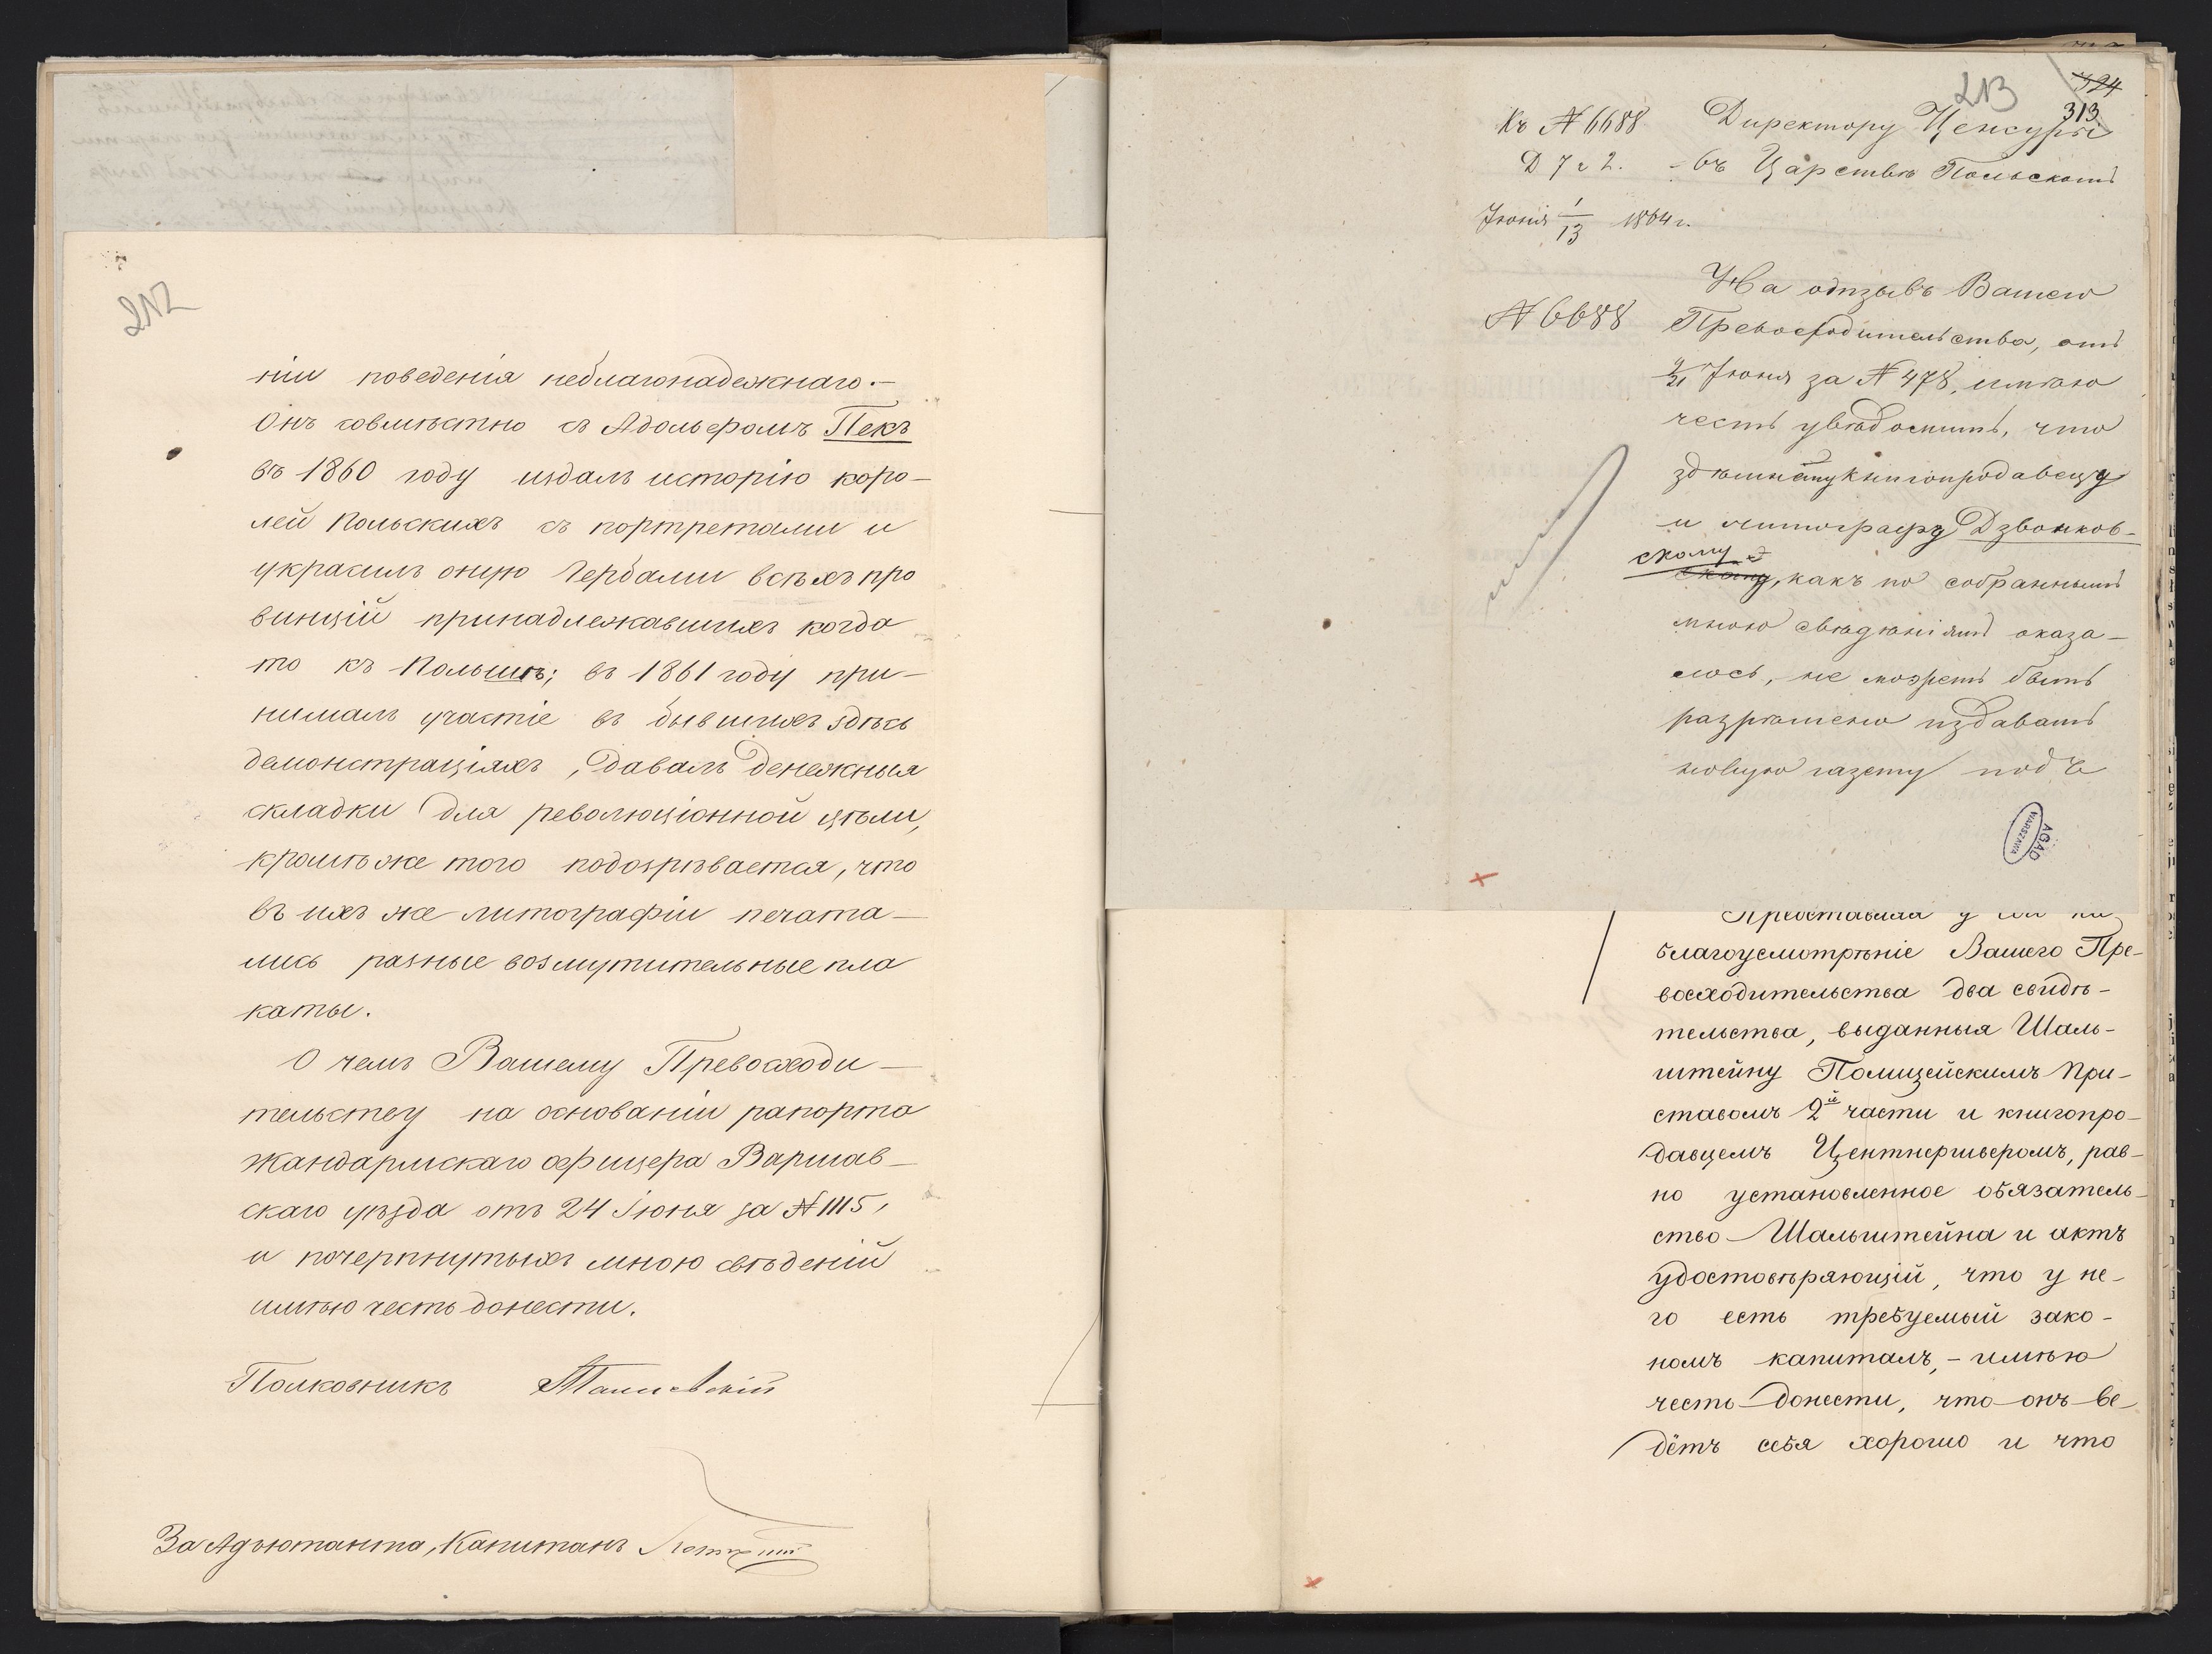 212
ніи поведенія неблагонадежнаго.—
Онъ совмѣстно съ Адольфомъ Пекъ
въ 1860 году издалъ исторію коро-
лей Польскихъ съ портретами и
украсилъ оную Гербами всѣхъ про
винцій принадлежавшихъ когда
то къ Польшѣ; въ 1861 году при-
нималъ участіе въ бывшихъ здѣсь
демонстраціяхъ, давалъ денежныя
складки для революціонной цѣли,
кромѣ же того подозрѣвается, что
въ ихъ же литографіи печата-
лись разные возмутительные пла
каты.
О чемъ Вашему Превосходи-
тельству на основаніи рапорта
Жандармскаго офицера Варшав-
скаго уѣзда отъ 24 Іюня за № 1115,
и почерпнутыхъ мною свѣденій
имѣю честь донести.
Полковникъ
За Адъютанта, Капитанъ
213
324
313
Къ № 6688
Д 7 г 2.
Іюня 1/13 1864 г.
№ 6688
Директору Ценсуры
въ Царствѣ Польскомъ
На отзывъ Вашего
Превосходительства, отъ
9/21 Іюня за № 478, имѣю
честь увѣдомить, что
здѣшнему книгопродавцу
и литографу Дзвонков-
скому
скому, какъ по собраннымъ
мною свѣдѣніямъ оказа-
лось, не можетъ быть
разрѣшено издавать
новую газету подъ
AGAD
WARSZAWA
Представляя у сего на
благоусмотрѣніе Вашего Пре-
восходительства два свидѣ-
тельства, выданныя Шаль-
штейну Полицейскимъ При-
ставомъ 2й части и книгопро-
давцемъ Центнершверомъ, рав-
но установленное обязатель-
ство Шальштейна и актъ
удостовѣряющій, что у не-
го есть требуемый зако-
номъ капиталъ, - имѣю
честь донести, что онъ ве-
дётъ себя хорошо и что